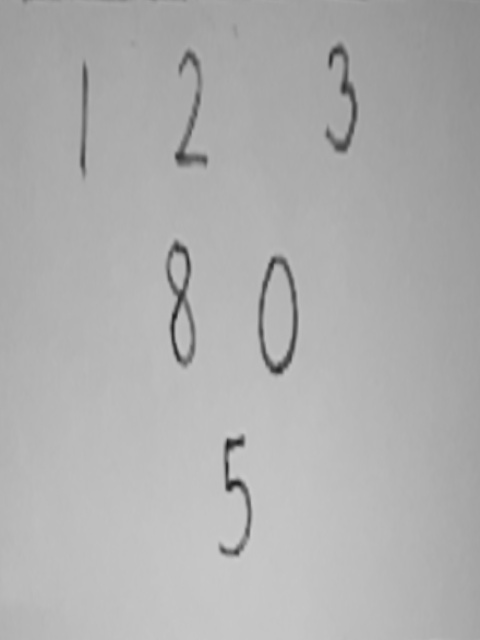 1 2 3
8 0
5